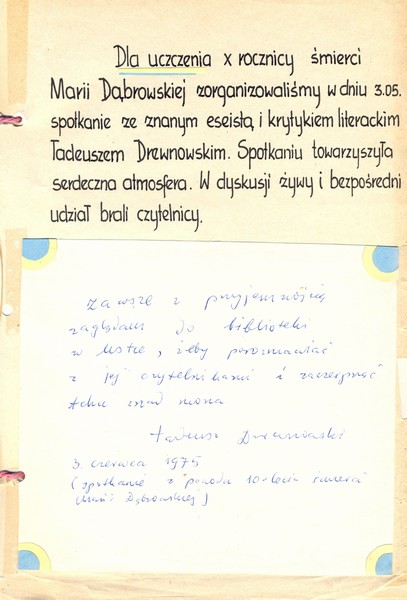 Dla uczczenia x rocznicy śmierci
Marii Dąbrowskiej zorganizowaliśmy w dniu 3.05.
spotkanie ze znanym eseistą i krytykiem literackim
Tadeuszem Drewnowskim. Spotkaniu towarzyszyła
serdeczna atmosfera. W dyskusji żywy i bezpośredni
udział brali czytelnicy.
Zawsze z przyjemnością
zaglądam do biblioteki
w Ustce, żeby porozmawiać
z jej czytelnikami i zaczerpnąć
tchu znad morza
Tadeusz Drewnowski
3. czerwca 1975
(spotkanie z powodu 10-lecia śmierci
Marii Dąbrowskiej)